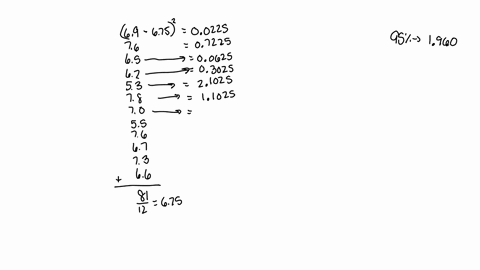 (6.9 - 6.75)² = 0.0225
7.6 = 0.7225
6.5 → = 0.0625
6.2 → = 0.3025
5.3 → = 2.1025
7.8 → = 1.1025
7.0 → =
5.5
7.6
6.7
7.3
+ 6.6
81/12 = 6.75
95% → 1.960